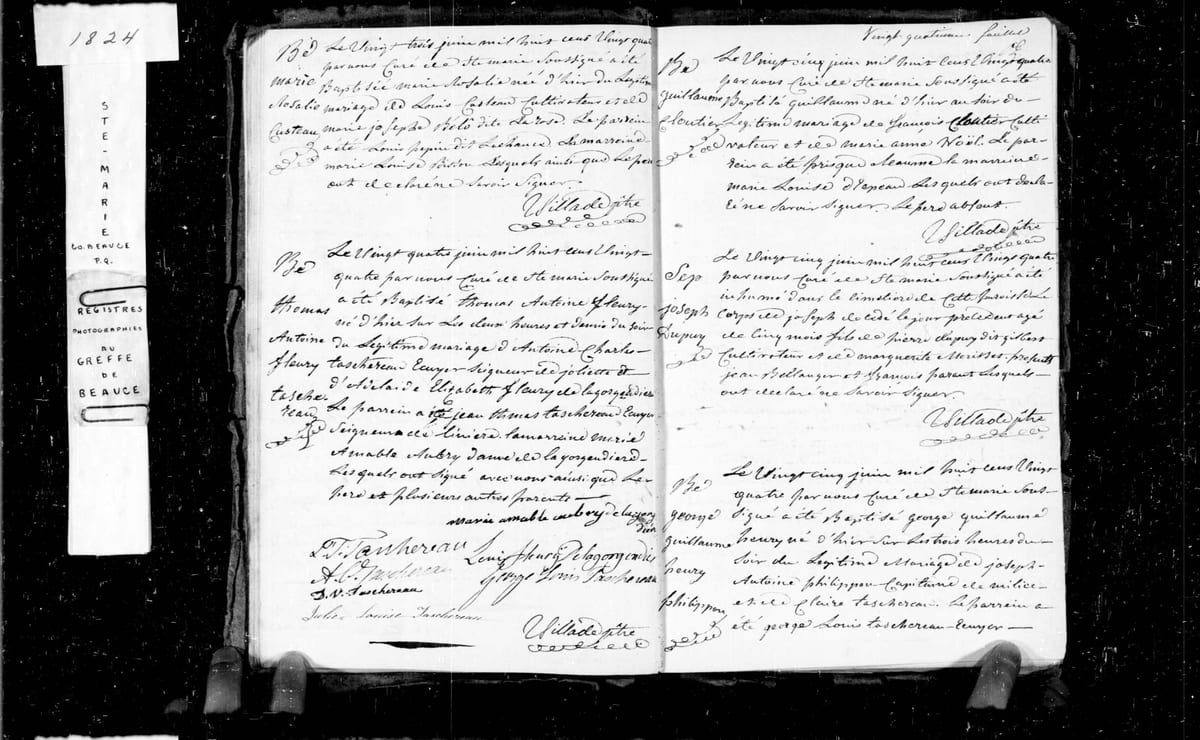 1824
STE-MARIE
CO. BEAUCE
P.Q.
REGISTRES
PHOTOGRAPHIES
AU
GREFFE
de
BEAUCE
Bê
marie
Rosalie
Custeau
Le Vingt trois juin mil huit cens Vingt quatre
par nous Curé de Ste marie Soussigné a été
Baptisée marie Rosalie née d'hier du Legitime
mariage de Louis Custeau Cultivateur et de
marie josephe dite La rose. Le parrein
a été Louis pepin dit Lachance La marreine
marie Louise Lesquels ainsi que Le pere
ont declaré ne Savoir Signer.
Villade ptre
Bê
thomas
Antoine
fleury
tasche
reau
Le Vingt quatre juin mil huit cens Vingt-
quatre par nous Curé de Ste marie Soussigné
a été Baptisé thomas Antoine fleury-
né d'hier sur Les deux heures et demie du soir
du Legitime mariage d'Antoine Charles-
taschereau Ecuyer Seigneur de joliette et
d'adelaide Elizabeth fleury de lagorgendiere
Le parrein a été jean thmas taschereau Ecuyer
Seigneur de liniere La marreine marie
Amable Aubry dame de la gorgendiere-
Lesquels ont Signé avec nous ainsi que Le-
pere et plusieurs autres parents-
marie amable aubry de lagorgen
dier
J.T. Taschereau
Louis Henry Delagorgendiere
A.C. Taschereau
George Louis Taschereau
D.V. Taschereau
Julie Louise Taschereau
Villade ptre
Vingt quatrieme feuillet
Bê
Guillaume
Cloutier
Le Vingt cinq juin mil huit cens Vingt quatre
par nous Curé de Ste marie Soussigné a été
Baptisé guillaume né d'hier au Soir du
Legitime mariage de françois Cloutier Culti
vateur et de marie anne Noël. Le par-
rein a été prisque La marreine-
marie Louise Lesquels ont decla-
ré ne Savoir Signer. Le pere absent.
Villade ptre
Sep
joseph
Dupuy
Le Vingt cinq juin mil huit cens Vingt quatre
par nous Curé de Ste marie Soussigné a été
inhumé dans le Cimetiere de Cette paroisse Le
Corps de joseph decédé le jour précédent agé
de Cinq mois fils de pierre dupuy dit gilbert
Cultivateur et de marguerite Morisset, presents
jean Bellanger et françois parent Lesquels-
ont declaré ne Savoir Signer.
Villade ptre
Bê
george
guillaume
henry
philippon
Le Vingt cinq juin mil huit cens Vingt
quatre par nous Curé de Ste marie Sous-
Signé a été Baptisé george guillaume
henry né d'hier Sur Les trois heures du-
Soir du Legitime Mariage de joseph-
Antoine philippon Capitaine de milice-
et de Claire taschereau. Le parrein a
été george Louis taschereau Ecuyer-